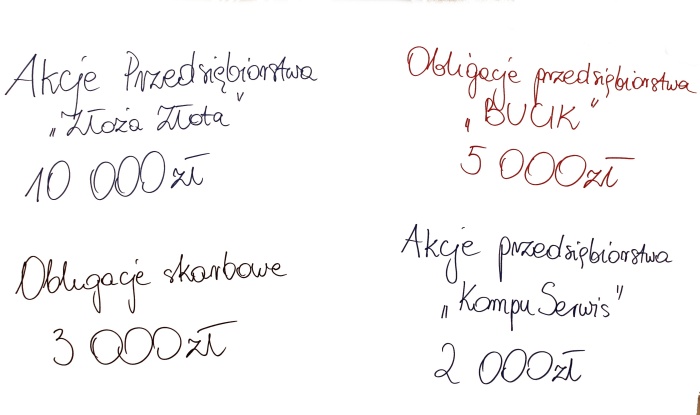 Akcje Przedsiębiorstwa
„Złoża Złota”
10 000 zł
Obligacje przedsiębiorstwa
„BUCIK”
5 000 zł
Obligacje skarbowe
3 000 zł
Akcje przedsiębiorstwa
„Kompu Serwis”
2 000 zł